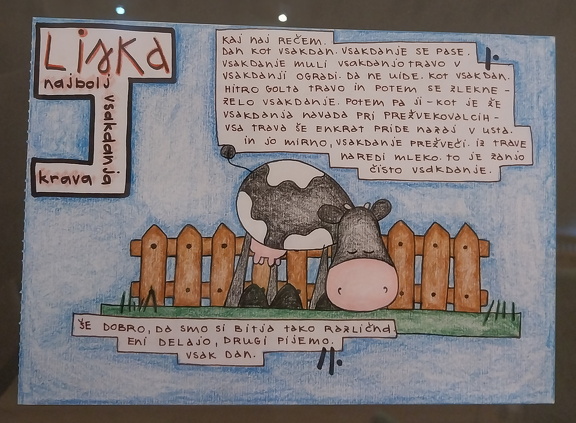 Liska
najbolj
vsakdanja
krava
KAJ NAJ REČEM.
DAN KOT VSAKDAN. VSAKDANJE SE PASE.
VSAKDANJE MULI VSAKDANJO TRAVO V
VSAKDANJI OGRADI. DA NE UIDE. KOT VSAKDAN.
HITRO GOLTA TRAVO IN POTEM SE ZLEKNE -
ZELO VSAKDANJE. POTEM PA JI - KOT JE ŽE
VSAKDANJA NAVADA PRI PREŽVEKOVALCIH -
VSA TRAVA ŠE ENKRAT PRIDE NAZAJ V USTA.
IN JO MIRNO, VSAKDANJE PREŽVEČI. IZ TRAVE
NAREDI MLEKO. TO JE ZANJO
ČISTO VSAKDANJE.
ŠE DOBRO, DA SMO SI BITJA TAKO RAZLIČNA
ENI DELAJO, DRUGI PIJEMO.
VSAK DAN.